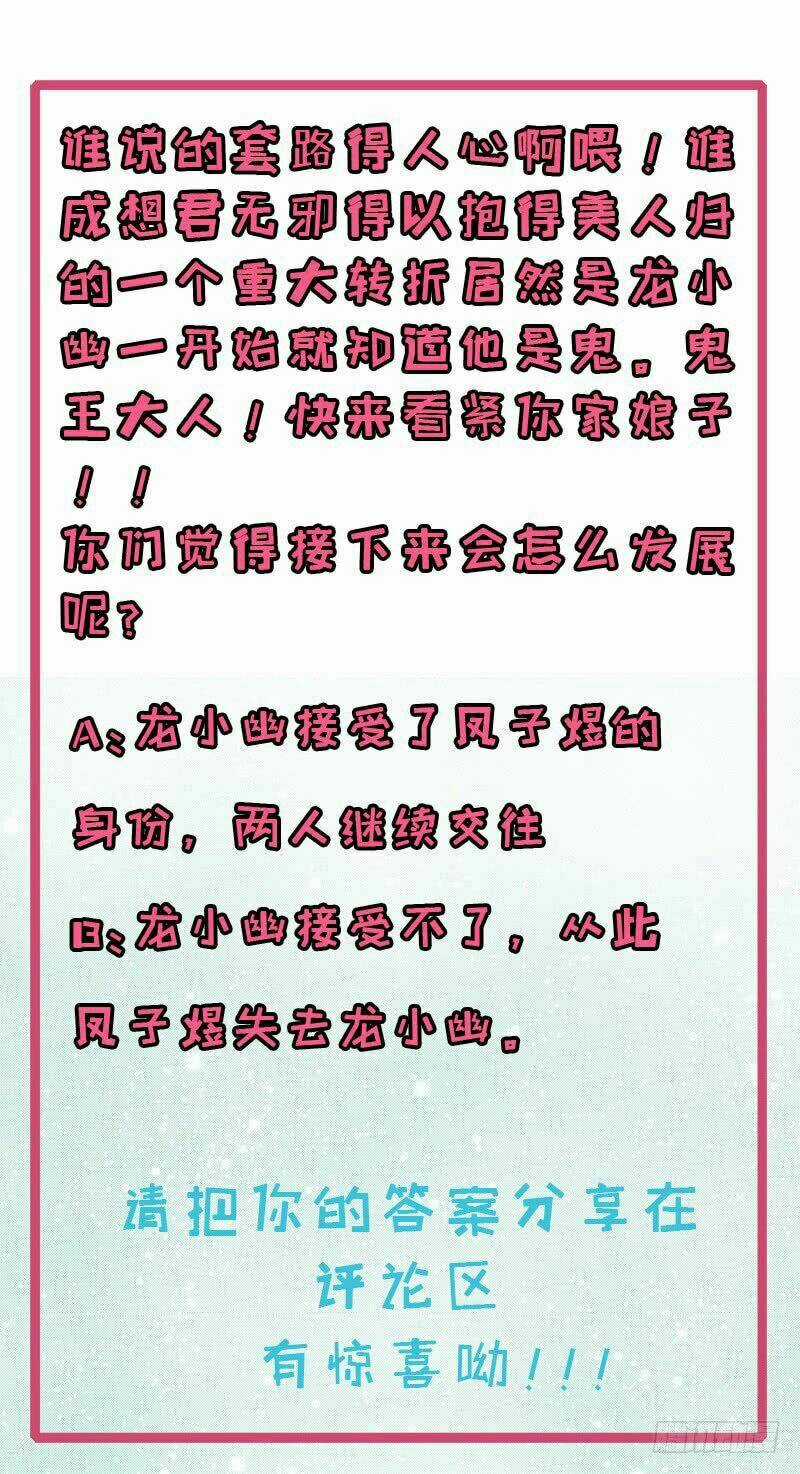 谁说的套路得人心啊喂！谁
成想君无邪得以抱得美人归
的一个重大转折居然是龙小
幽一开始就知道他是鬼。鬼
王大人！快来看紧你家娘子
！！
你们觉得接下来会怎么发展
呢？
A:龙小幽接受了凤子煜的
身份，两人继续交往
B:龙小幽接受不了，从此
凤子煜失去龙小幽。
请把你的答案分享在
评论区
有惊喜呦！！！